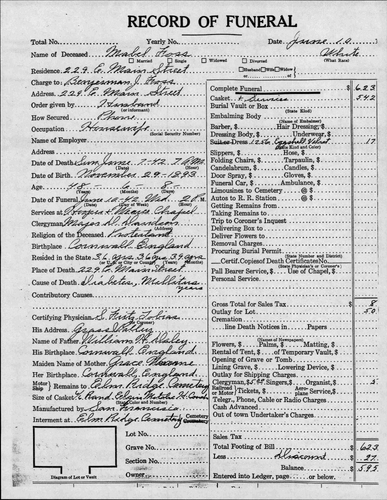 RECORD OF FUNERAL
Total No. Yearly No. Date June 10
Name of Deceased Mabel Foss White
Married Single Widowed Divorced (What Race)
Residence 229 E. Main Street
Charge to Benjaman J. Foss
Address 229 E. Main Street
Order given by Husband
How Secured Phone
Occupation Housewife
(Social Security Number)
Name of Employer
Address
Date of Death Sun. June 7-42 7 A.M.
Date of Birth November 29-1893
Age 48 6 8
Date of Funeral June 10-42 Wed. 2 P.M.
Services at Hooper & Weaver Chapel
Clergyman
Religion of the Deceased Protestant
Birthplace Cornwall England
Resided in the State 36 yrs 36 yrs 34 yrs
Place of Death 229 E. Main Street
Cause of Death Diabetes Mellitus
years
Contributory Causes
Certifying Physician
His Address Grass Valley
Name of Father William H. Haley
His Birthplace Cornwall England
Maiden Name of Mother Grace
Her Birthplace Cornwall England
Remains to Elm Ridge Cemetery
Size & Kind
Manufactured by San Francisco
Interment at Elm Ridge Cemetery Cemetery
Lot No.
Grave No.
Section No.
Owner
Diagram of Lot or Vault
Complete Funeral $ 623
Casket & Services 542
Burial Vault or Box
(State Kind)
Embalming Body
(Name of Embalmer)
Barber, $ Hair Dressing, $
Dressing Body, $ Underwear, $
Suit or Dress 1256 Eggshell Velvet 17
Slippers, $ Hose, $
Folding Chairs, $ Tarpaulin, $
Candelabrum, $ Candles, $
Door Spray, $ Gloves, $
Funeral Car, $ Ambulance, $
Limousines to Cemetery @ $
Autos to R. R. Station @ $
Getting Remains from
Taking Remains to
Trip to Coroner's Inquest
Delivering Box to
Deliver Flowers to
Removal Charges
Procuring Burial Permit
(State Number and District)
Certif. Copies of Death Certificates, $
(State Physician's or Coroner's)
Pall Bearer Service, $ Use of Chapel, $
Personal Service
Gross Total for Sales Tax $ 8
Outlay for Lot 50
Cremation
line Death Notices in Papers
(Names of Newspapers)
Flowers, $ Palms, $ Matting, $
Rental of Tent, $ of Temporary Vault, $
Opening of Grave or Tomb
Lining Grave, $ Lowering Device, $
Outlay for Shipping Charges
Clergyman, $ 5.00 Singers, $ Organist, $ 5
Tickets, $ Service, $
Telgr., Phone, Cable or Radio Charges
Cash Advanced
Out of town Undertaker's Charges
Sales Tax
Total Footing of Bill $ 623
Less Discount $ 27
Balance $ 595
Entered into Ledger, page or below.